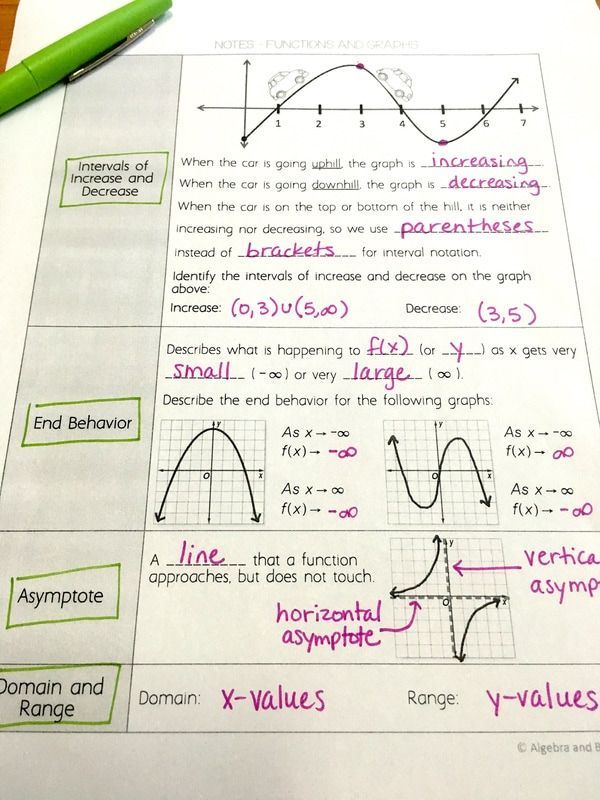 NOTES - FUNCTIONS AND GRAPHS
1 2 3 4 5 6 7
Intervals of
Increase and
Decrease
When the car is going uphill, the graph is increasing.
When the car is going downhill, the graph is decreasing.
When the car is on the top or bottom of the hill, it is neither
increasing nor decreasing, so we use parentheses
instead of brackets for interval notation.
Identify the intervals of increase and decrease on the graph
above:
Increase: (0,3)∪(5,∞) Decrease: (3,5)
End Behavior
Describes what is happening to f(x) (or y) as x gets very
small (-∞) or very large (∞).
Describe the end behavior for the following graphs:
y
x
O
As x→-∞
f(x)→ -∞
As x→∞
f(x)→ -∞
y
x
O
As x→-∞
f(x)→ ∞
As x→∞
f(x)→ -∞
Asymptote
A line that a function
approaches, but does not touch.
horizontal
asymptote
y
x
O
vertica
asymp
Domain and
Range
Domain: x-values Range: y-values
© Algebra and B